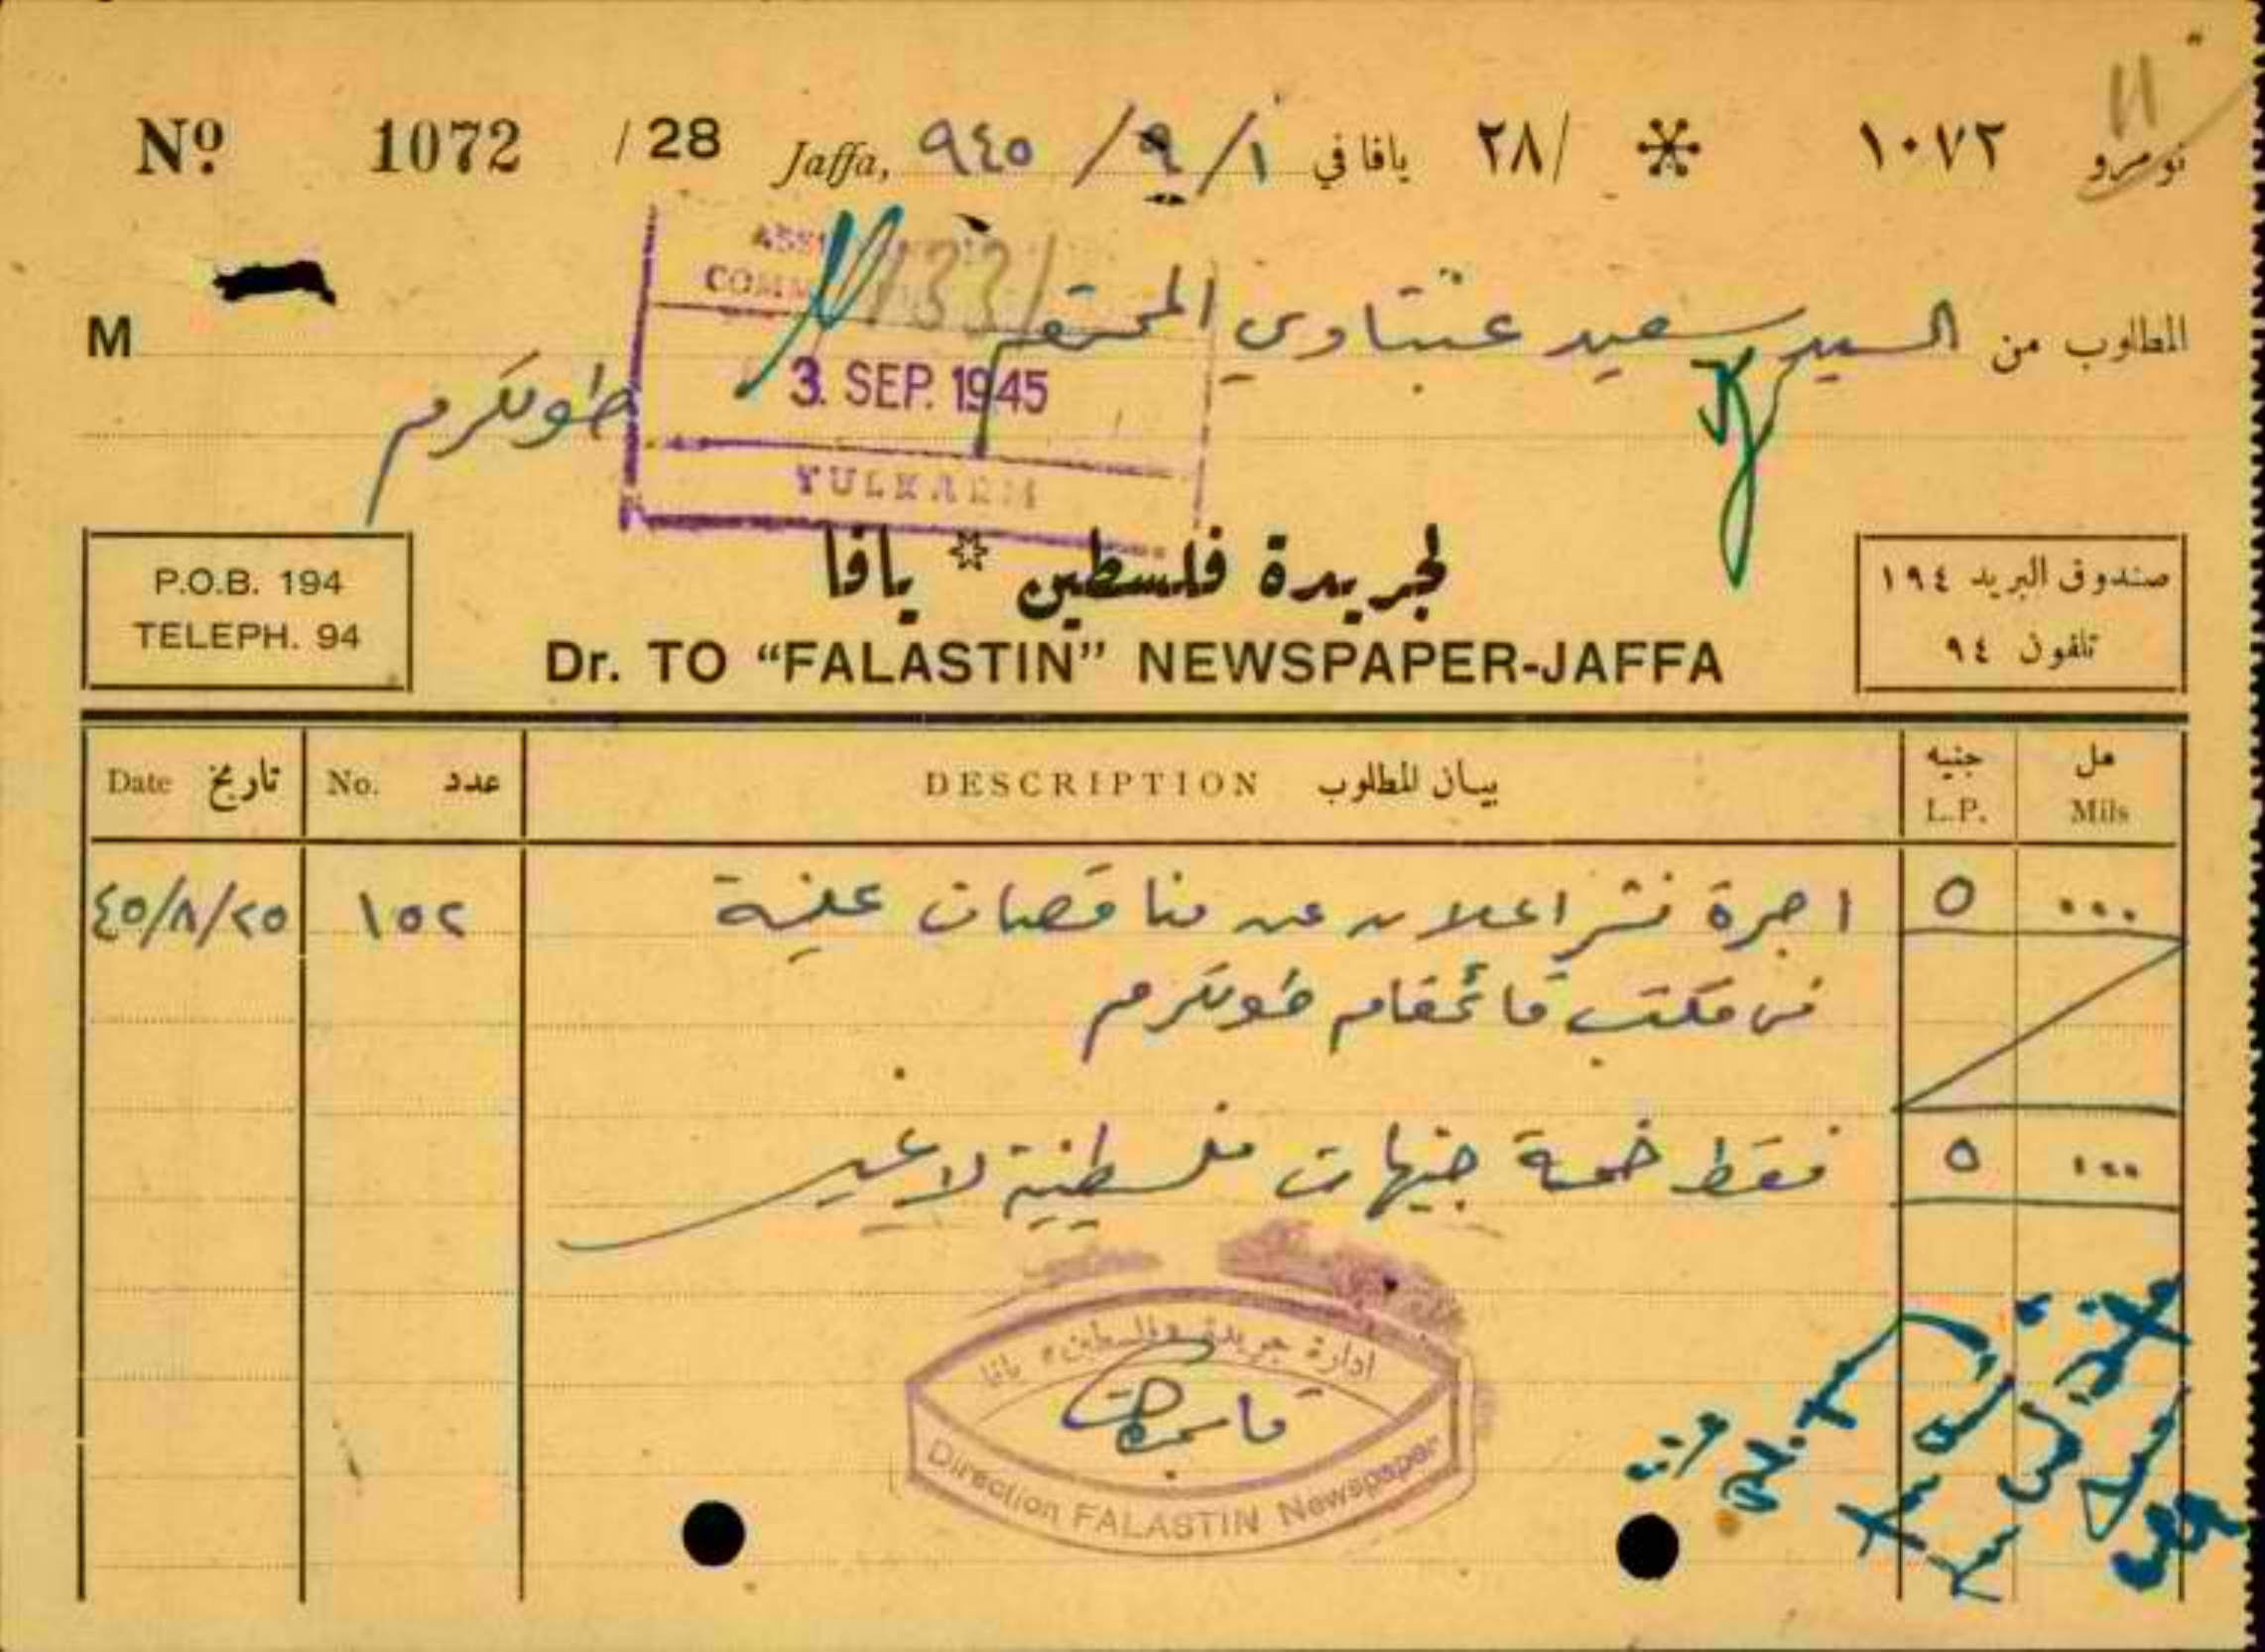 Nº 1072 / 28 Jaffa, ٩٤٥ / ٩ / ١ يافا في ٢٨/ ١٠٧٢ نومرو
١١
M المطلوب من السيد سعيد عنبتاوي المحترم
طولكرم
3. SEP. 1945
TULKARM
P.O.B. 194
TELEPH. 94
لجريدة فلسطين يافا
Dr. TO “FALASTIN” NEWSPAPER-JAFFA
صندوق البريد ١٩٤
تلفون ٩٤
Date تاريخ No. عدد DESCRIPTION بيان المطلوب جنيه L.P. مل Mils
٤٥/٨/٢٥ ١٥٢ اجرة نشر اعلان عن مناقصات علنية ٥ ٠٠٠
في مكتب قائمقام طولكرم
فقط خمسة جنيهات فلسطينية لا غير ٥ ٠٠٠
ادارة جريدة فلسطين يافا
Direction FALASTIN Newspaper